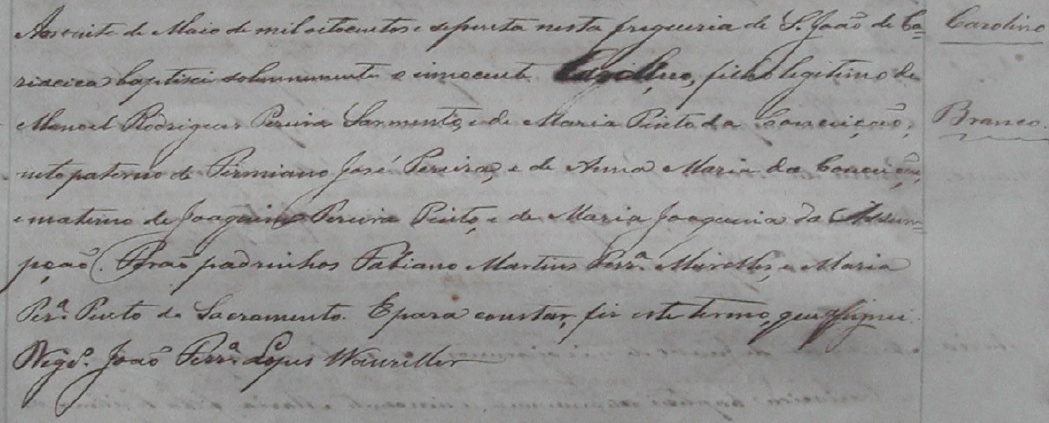 Aos vinte de Maio de mil oitocentos e sepenta nesta freguesia de S. João de Ca=
riacica baptisei solemnemente o innocente Carolino, filho legitimo de
Manoel Rodrigues Pereira Sarmento, e de Maria Pinto da Conceição,
neto paterno de Firmiano José Pereira, e de Anna Maria da Conceição,
e materno de Joaquim Pereira Pinto, e de Maria Joaquina da Assum=
pção. Forão padrinhos Fabiano Martins Ferrª Meirelles, e Maria
Perª Pinto do Sacramento. E para constar, fiz este termo, que assignei.
Vigº João Ferrª Lopes
Carolino
Branco.